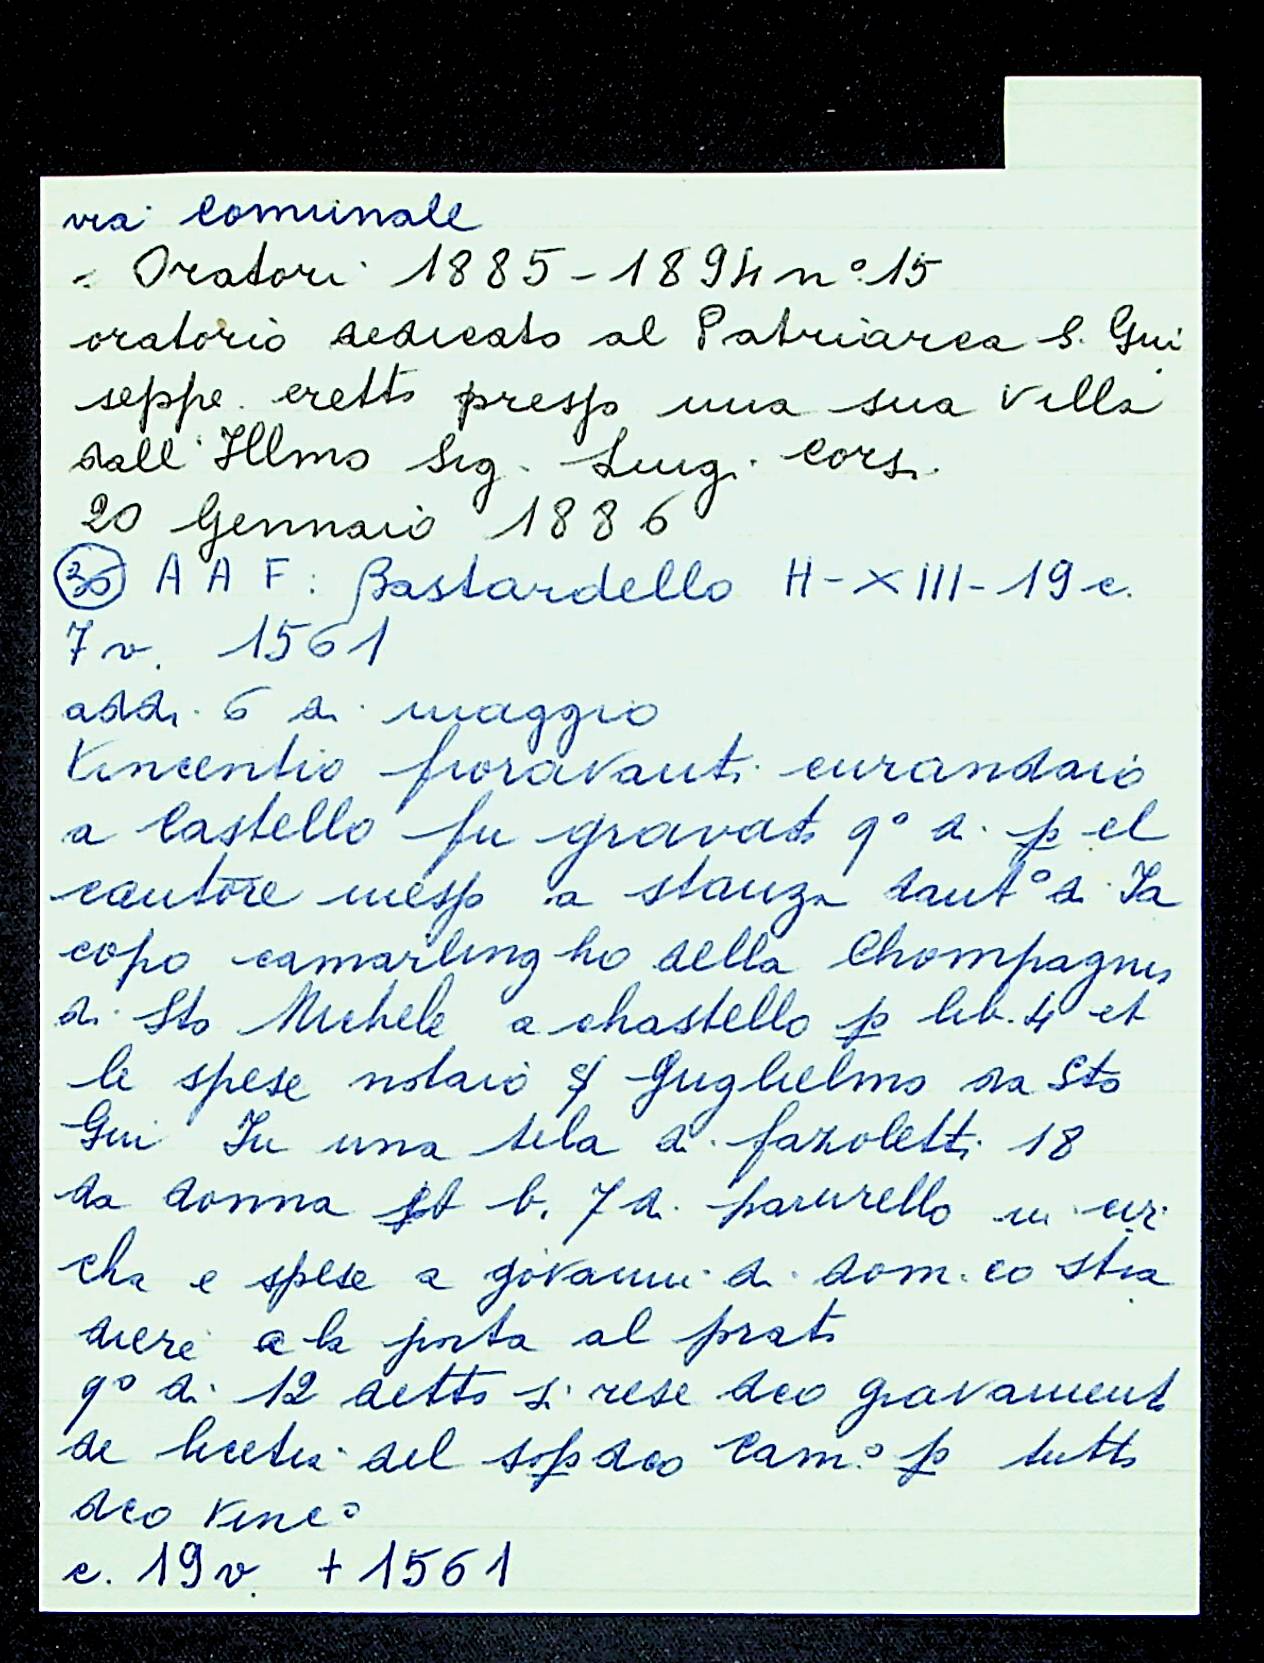 via comunale
" Oratori 1885-1894 n° 15
oratorio dedicato al Patriarca S. Giu
seppe eretto presso una sua villa
dall'Illmo Sig. Luigi Corsi.
20 Gennaio 1886
36 A A F: Bastardello H-XIII-19 c.
7v. 1561
addi 6 di maggio
Vincentio fioravanti curandaio
a Castello fu gravato q° di p el
cautore messo a stanza d'ant° di Ja
copo camarlingho della Chompagnia
di Sto Michele a chastello p lib. 4 et
le spese notaio Guglielmo da Sto
Gui In una tela di fazoletti 18
da donna et b. 7 di in cir
cha e spese a giovanni di dom.co stra
diere a la porta al prato
q° di 12 detto si rese dco gravamento
de licetia del sopdco Cam.° p tutto
dco Vinc°
c. 19v. + 1561